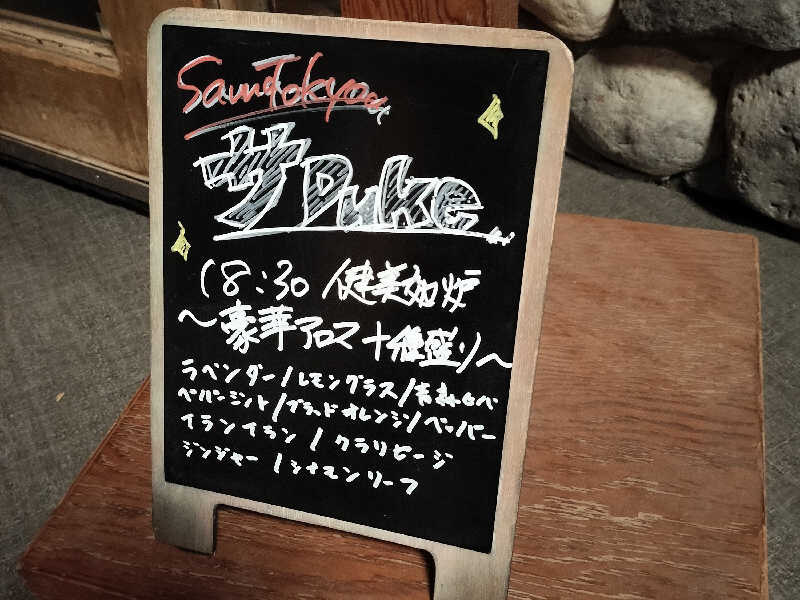 SaunaTokyo
サDuke
18:30 健美効炉
〜豪華アロマ十種盛り〜
ラベンダー/レモングラス/青森ヒバ
ペパーミント/ブラッドオレンジ/ペッパー
イランイラン/クラリセージ
ジンジャー/シナモンリーフ